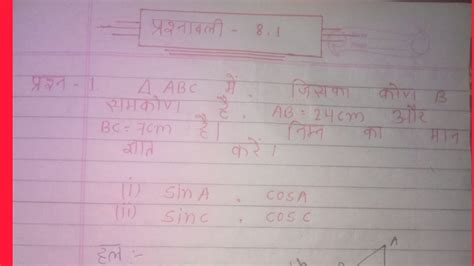 प्रश्नावली - 8.1
प्रश्न - 1. Δ ABC में, जिसका कोण B
समकोण है, AB = 24cm और
BC = 7cm है। निम्न का मान
ज्ञात करें।
(i) sin A, cosA
(ii) sinc, cos C
हल :-
A